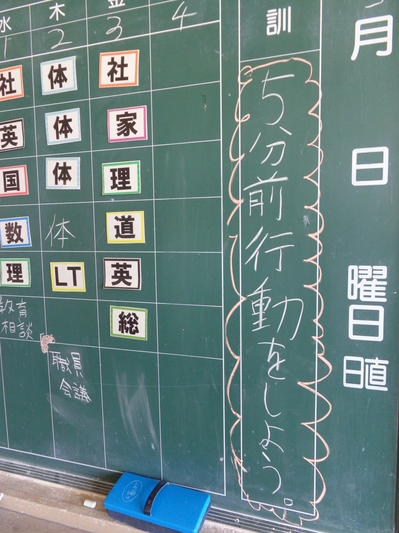 月
日
曜日
日直
訓
5分前行動をしよう。
水 木 金
1 2 3 4
社 体 社
英 体 家
国 体 理
数 体 道
理 LT 英
総
教育
相談
職員
会議